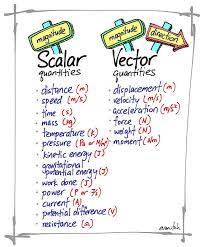 magnitude
Scalar
quantities
• distance (m)
• speed (m/s)
• time (s)
• mass (kg)
• temperature (K)
• pressure (Pa or N/m²)
• kinetic energy (J)
• gravitational
potential energy (J)
• work done (J)
• power (P or J/s)
• current (A)
• potential difference (V)
• resistance (Ω)
magnitude
direction
Vector
Quantities
• displacement (m)
• velocity (m/s)
• acceleration (m/s²)
• force (N)
• weight (N)
• moment (Nm)